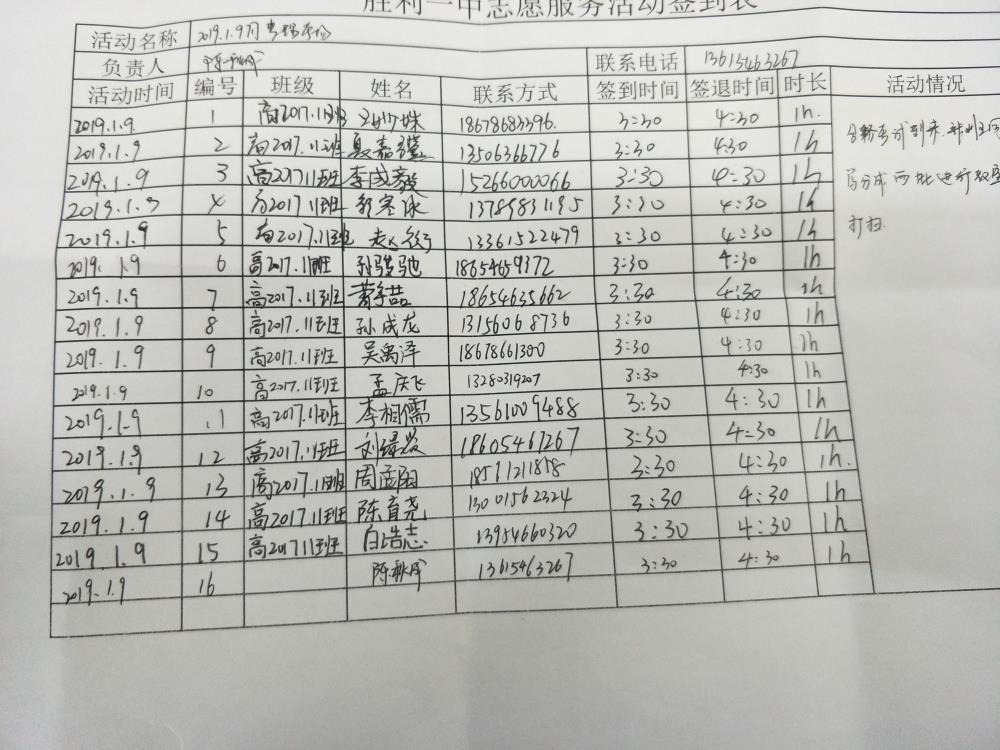 胜利一中志愿服务活动签到表
活动名称 2019.1.9
负责人 联系电话 13615463267
活动时间 编号 班级 姓名 联系方式 签到时间 签退时间 时长 活动情况
2019.1.9 1 高2017.11班 18678683396. 3:30 4:30 1h.
2019.1.9 2 高2017.11班 夏嘉莹 13506366776 3:30 4:30 1h
2019.1.9 3 高2017 11班 李成毅 15266000066 3:30 4:30 1h
2019.1.9 4 高2017.11班 郭寒冰 13789831195 3:30 4:30 1h
2019.1.9 5 高2017.11班 赵 13361522479 3:30 4:30 1h
2019.1.9 6 高2017.11班 孙骏驰 18654659372 3:30 4:30 1h
2019.1.9 7 高2017.11班 18654635662 3:30 4:30 1h
2019.1.9 8 高2017.11班 孙成龙 13156068736 3:30 4:30 1h
2019.1.9 9 高2017.11班 吴禹泽 18678661300 3:30 4:30 1h
2019.1.9 10 高2017.11班 孟庆飞 13280319207 3:30 4:30 1h
2019.1.9 11 高2017.11班 李相儒 13561009488 3:30 4:30 1h
2019.1.9 12 高2017.11班 刘 18605467267 3:30 4:30 1h
2019.1.9 13 高2017.11班 周孟阳 18561211858 3:30 4:30 1h.
2019.1.9 14 高2017.11班 陈育尧 13001562324 3:30 4:30 1h
2019.1.9 15 高2017 11班 白浩志 13954660320 3:30 4:30 1h
2019.1.9 16 陈 13615463267 3:30 4:30 1h
考试到来
分成两批进行
打扫.